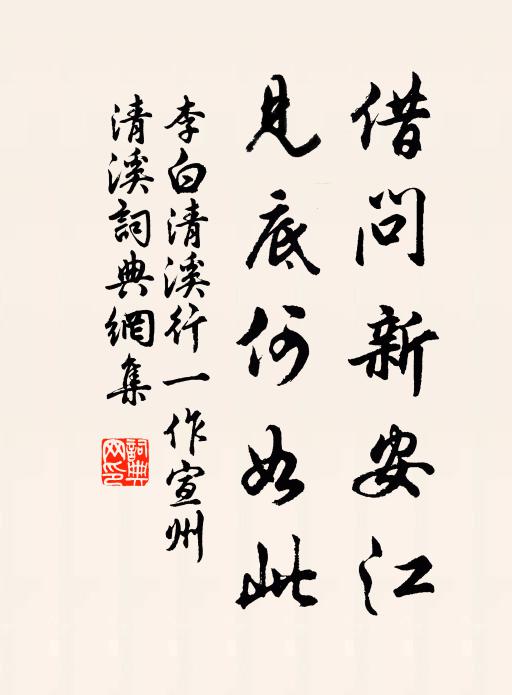 借問新安江
見底何如此
李白清溪行一作宣州
清溪詞典網集
詞典网印